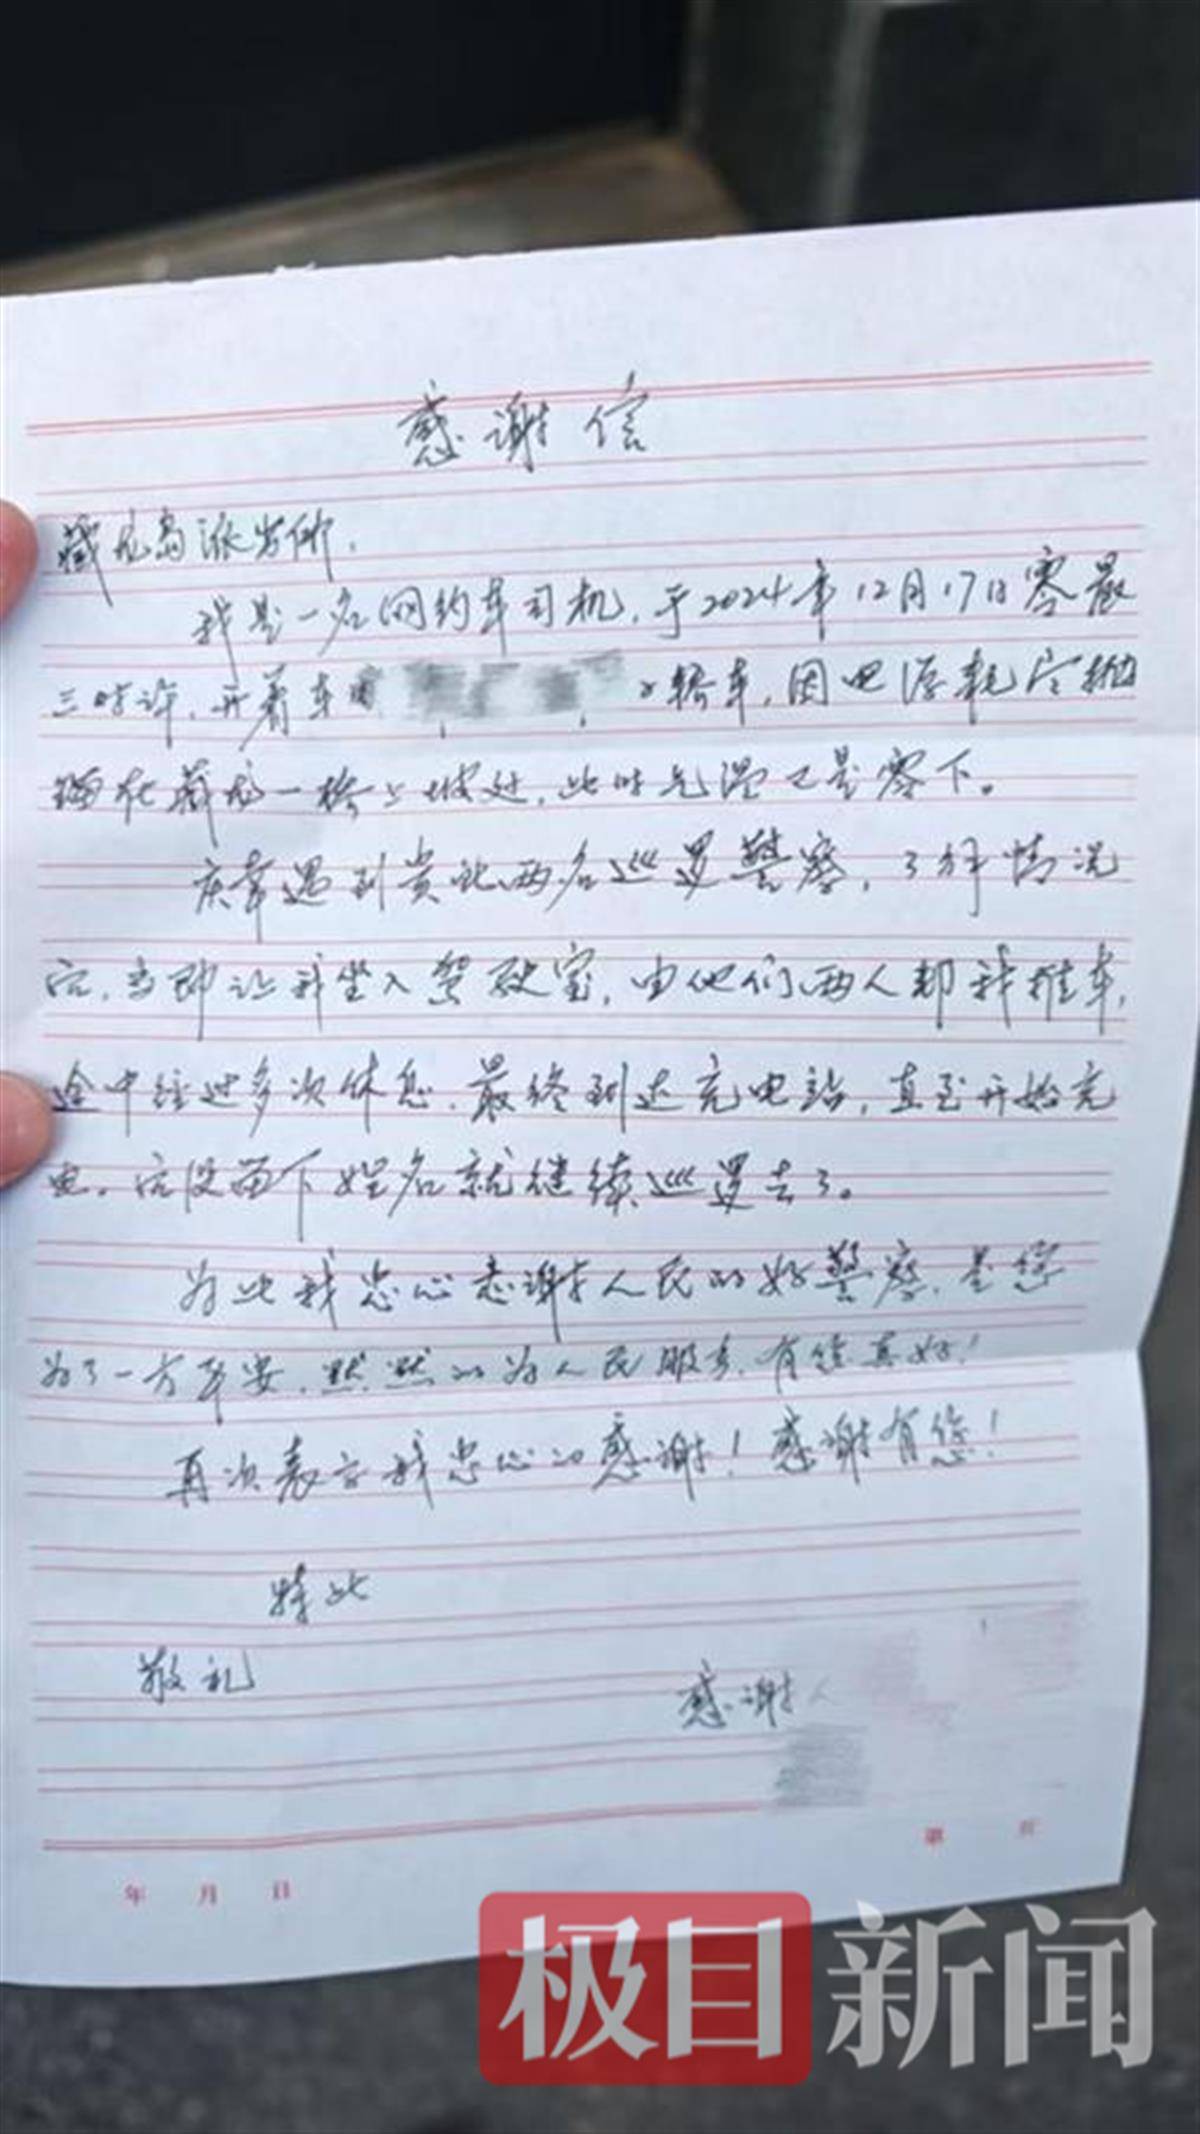 感谢信
藏龙岛派出所,
我是一名网约车司机,于2024年12月17日零晨
三时许,开着车 轿车,因电源耗尽抛
锚在藏龙一桥上坡处,此时气温已是零下。
庆幸遇到贵所两名巡逻警察,了解情况
后,当即让我坐入驾驶室,由他们两人帮我推车,
途中经过多次休息,最终到达充电站,直至开始充
电。后没留下姓名就继续巡逻去了。
为此我忠心感谢人民的好警察,是您
为了一方平安,默默的为人民服务,有您真好!
再次表示我忠心的感谢!感谢有您!
特此
敬礼
感谢人
第 页
年 月 日
极目新闻